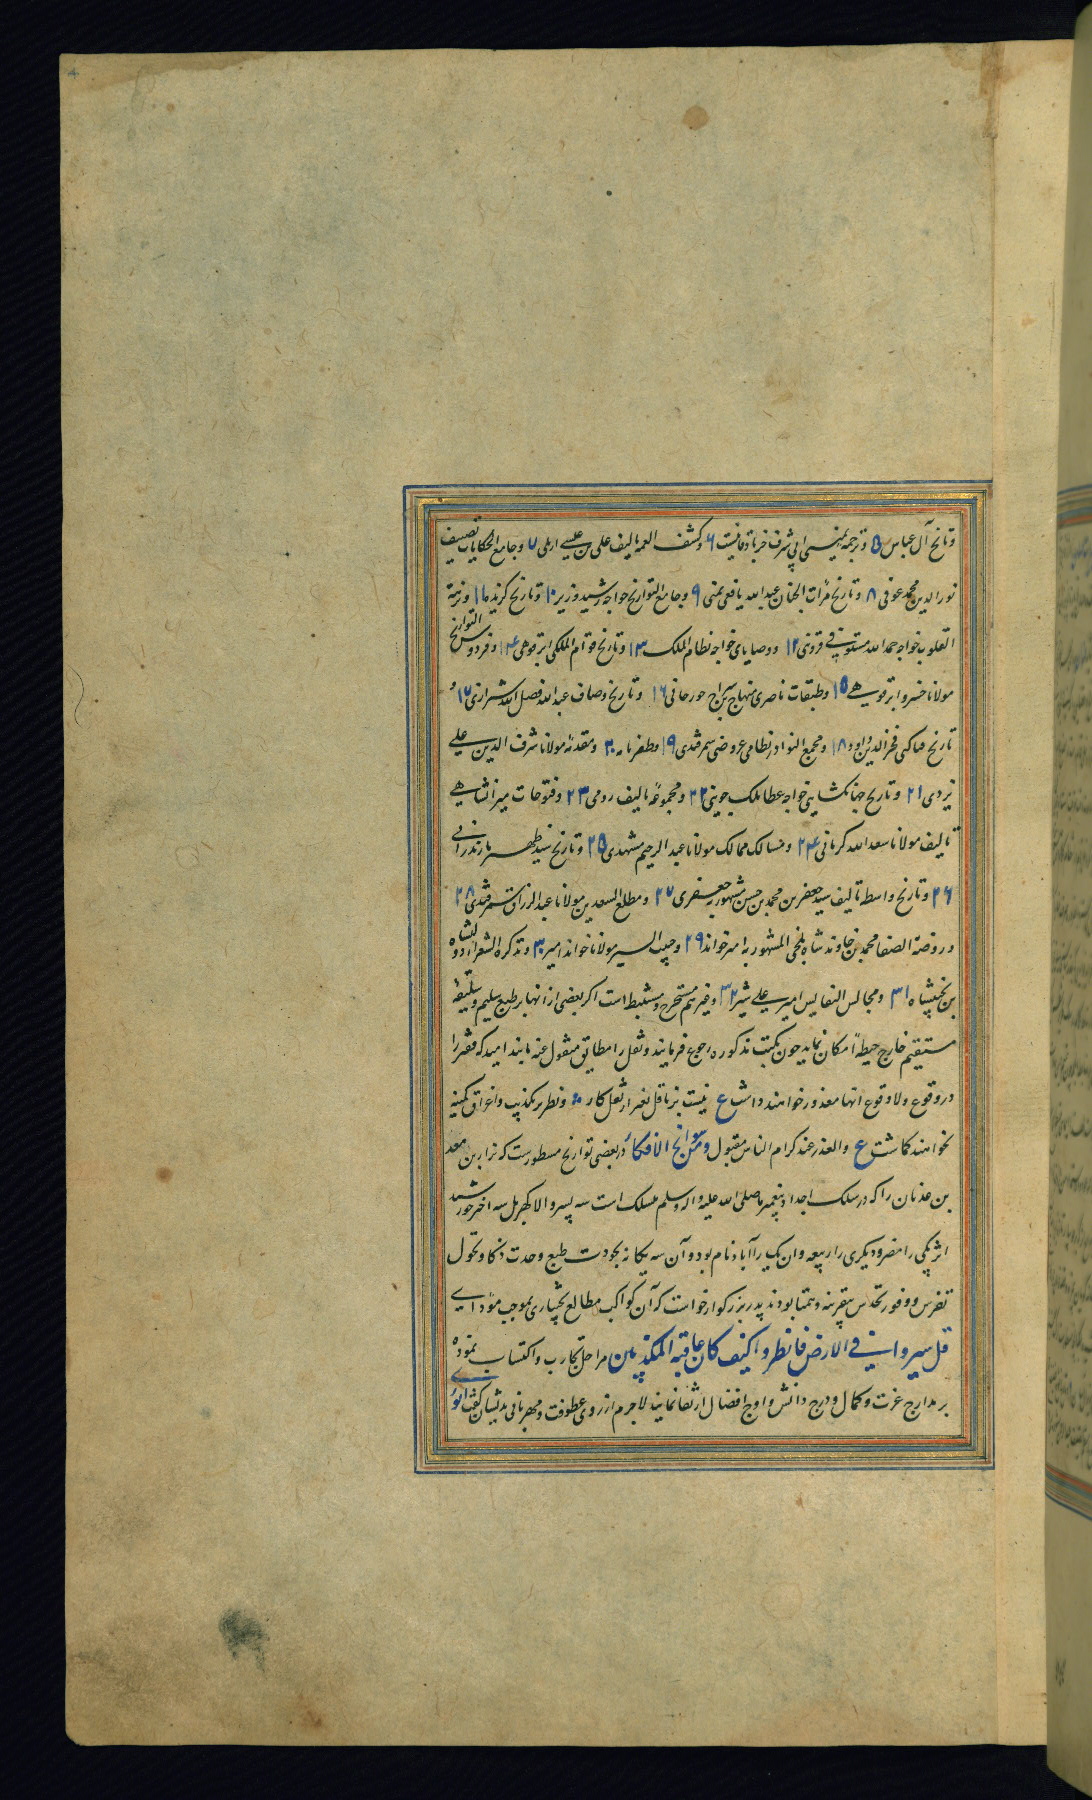 و تاریخ آل عباس ۵ و ترجمه یمینی ابی شرف جرباذقانیست ۶ و کشف الغمه تالیف علی بن عیسی اربلی ۷ و جامع الحکایات تصنیف
نورالدین محمد عوفی ۸ و تاریخ مرات الجنان عبدالله یافعی یمنی ۹ و جامع التواریخ خواجه رشید وزیر ۱۰ و تاریخ گزیده ۱۱ و نزهة
القلوب خواجه حمدالله مستوفی قزوینی ۱۲ و وصایای خواجه نظام الملک ۱۳ و تاریخ قوام الملکی ابرقوهی ۱۴ و فردوس التواریخ
مولانا خسرو ابرقوهی ۱۵ و طبقات ناصری منهاج سراج جورجانی ۱۶ و تاریخ وصاف عبدالله فضل الله شیرازی ۱۷ و
تاریخ فناکتی فخرالدین داود ۱۸ و مجمع النوادر نظامی عروضی سمرقندی ۱۹ و ظفرنامه ۲۰ و مقدمه مولانا شرف الدین علی
یزدی ۲۱ و تاریخ جهانکشایی خواجه عطا ملک جوینی ۲۲ و مجموعه تالیف رومی ۲۳ و فتوحات میرانشاهی
تالیف مولانا سعدالله کرمانی ۲۴ و مسالک ممالک مولانا عبدالرحیم مشهدی ۲۵ و تاریخ سید ظهیر مازندرانی
۲۶ و تاریخ واسطه تالیف سید جعفر بن محمد بن حسن مشهور به جعفری ۲۷ و مطلع السعدین مولانا عبدالرزاق سمرقندی ۲۸
و روضة الصفا محمد بن خاوند شاه بلخی المشهور به امیرخواند ۲۹ و حبیب السیر مولانا خواندامیر ۳۰ و تذکره الشعرا دولتشاه
بن بختیشاه ۳۱ و مجالس النفایس امیر علی شیر ۳۲ و غیرهم مستخرج و مستنبط است اکر بعضی از انها بر طبع سلیم و سلیقه
مستقیم خارج حیطه امکان نماید چون بکتب مذکوره رجوع فرمایند و نقل را مطابق منقول عنه یابند امید که فقیر را
در وقوع و لا وقوع انها معذور خواهند داشت ع نیست بر ناقل بغیر از نقل کار و نظر بر تکذیب و اغراق کمینه
نخواهند کماشت ع والعذر عند کرام الناس مقبول و من سوانح الافکار در بعضی تواریخ مسطورست که نزار بن معد
بن عدنان را که در سلک اجداد پیغمبر ما صلی الله علیه واله وسلم منسلک است سه پسر والاکهر بل سه اختر خورشید
اثر یکی را مضر و دیکری را ربیعه و ان یک را آیاد نام بود و آن سه یکانه بجودت طبع و حدت ذکا و تحول
تفرس و وفور تحدس بیقرینه و همتا بودند پدر بزرکوار خواست که آن کواکب مطالع بختیاری بموجب مؤدای
قل سیروا فی الارض فانظروا کیف کان عاقبة المکذبین مراحل تجارب و اکتساب نموده
بر مدارج عزت و کمال و درج دانش و اوج افضال ارتقا نمایند لاجرم از روی عطوفت و مهربانی بدیشان کفت ای